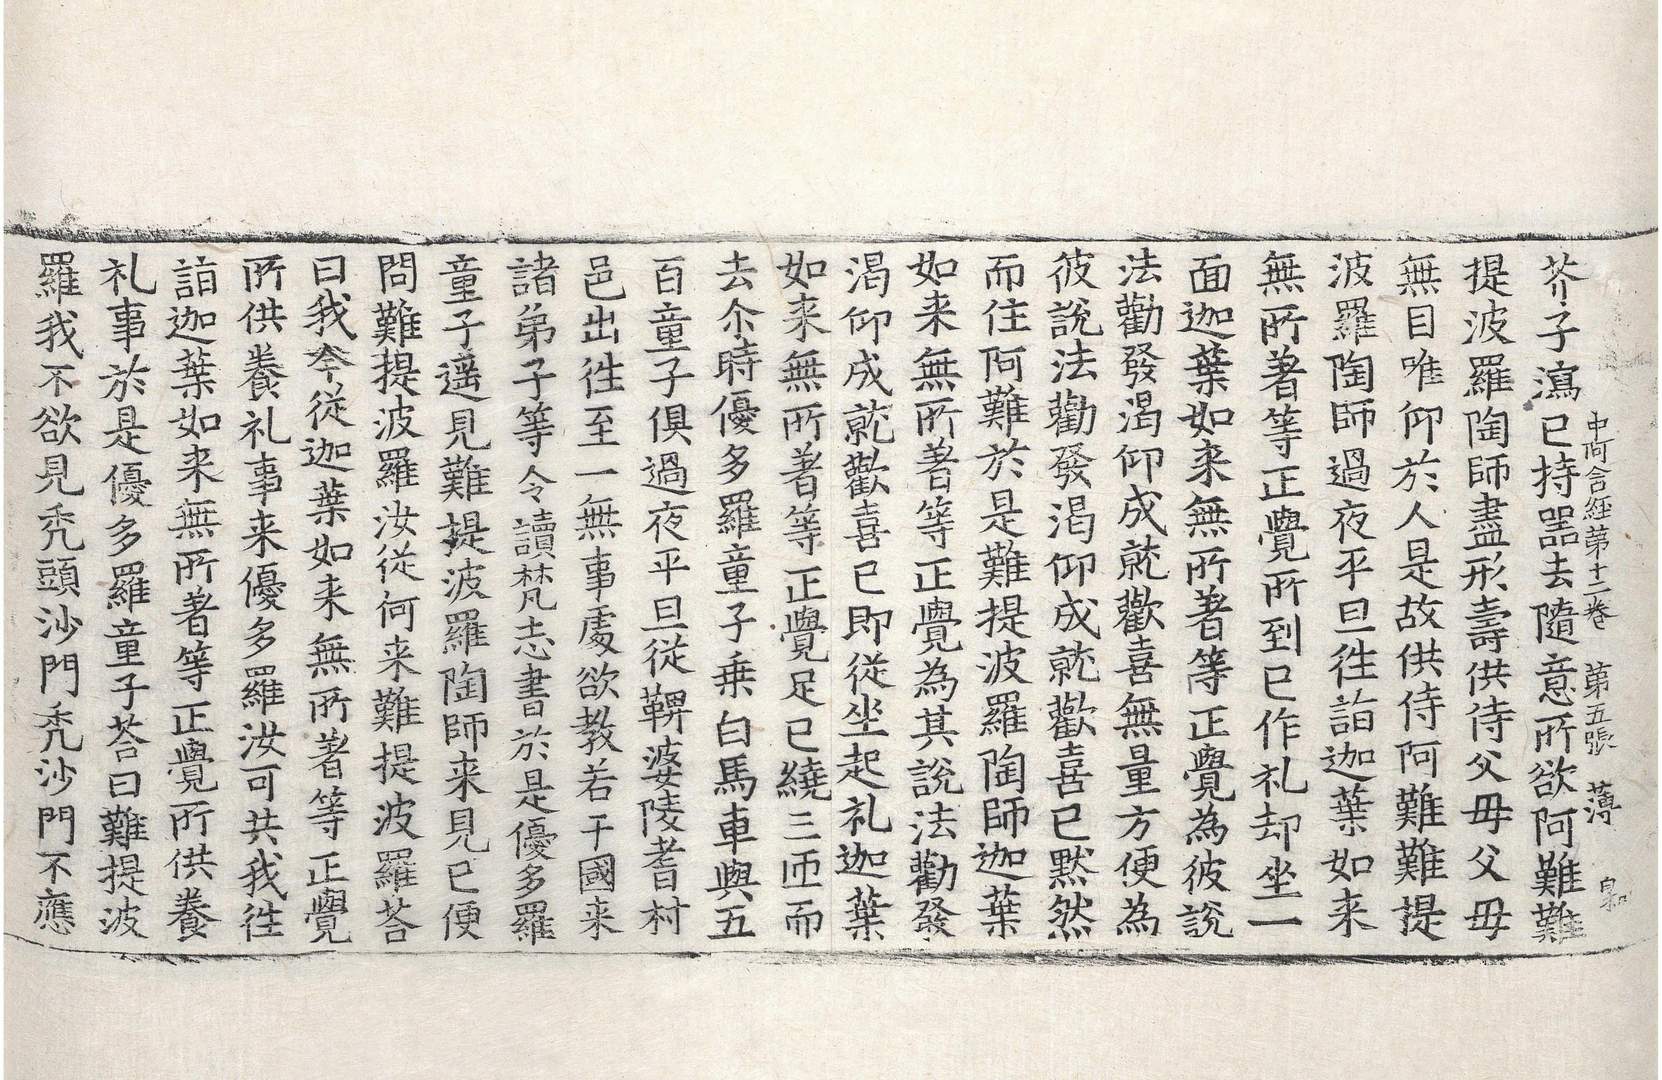 中阿含經第十二卷 第五張 薄
芥子瀉已持器去隨意所欲阿難難
提波羅陶師盡形壽供侍父母父母
無目唯仰於人是故供侍阿難難提
波羅陶師過夜平旦往詣迦葉如来
無所著等正覺所到已作礼却坐一
面迦葉如来無所著等正覺為彼說
法勸發渴仰成就歡喜無量方便為
彼說法勸發渴仰成就歡喜已默然
而住阿難於是難提波羅陶師迦葉
如来無所著等正覺為其說法勸發
渴仰成就歡喜已即從坐起礼迦葉
如来無所著等正覺足已繞三匝而
去尒時優多羅童子乗白馬車與五
百童子俱過夜平旦從鞞婆陵耆村
邑出往至一無事處欲教若干國来
諸弟子等令讀梵志書於是優多羅
童子遥見難提波羅陶師来見已便
問難提波羅汝從何来難提波羅荅
曰我今從迦葉如来無所著等正覺
所供養礼事来優多羅汝可共我往
詣迦葉如来無所著等正覺所供養
礼事於是優多羅童子荅曰難提波
羅我不欲見秃頭沙門秃沙門不應